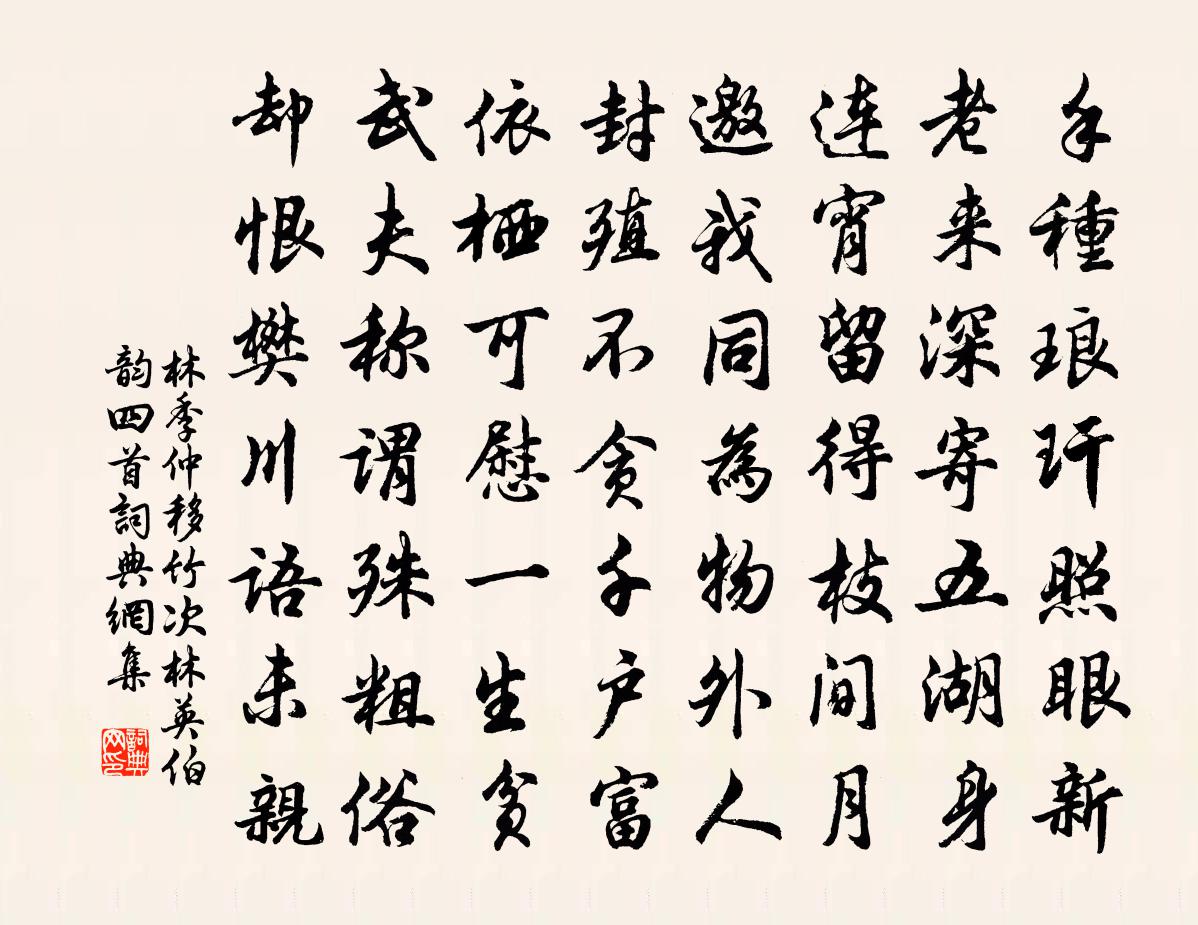 手種琅玕照眼新
老来深寄五湖身
连宵留得枝间月
邀我同為物外人
封殖不贪千户富
依栖可慰一生贫
武夫称谓殊粗俗
却恨樊川语未親
林季仲移竹次林英伯
韵四首詞典網集
詞典网印